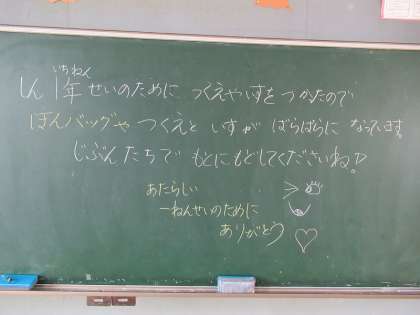 いちねん
しん1年せいのために つくえやいすを つかったので
ほんバッグや つくえと いすが ばらばらに なっています。
じぶんたちで もとにもどしてくださいね!
あたらしい
一ねんせいのために
ありがとう